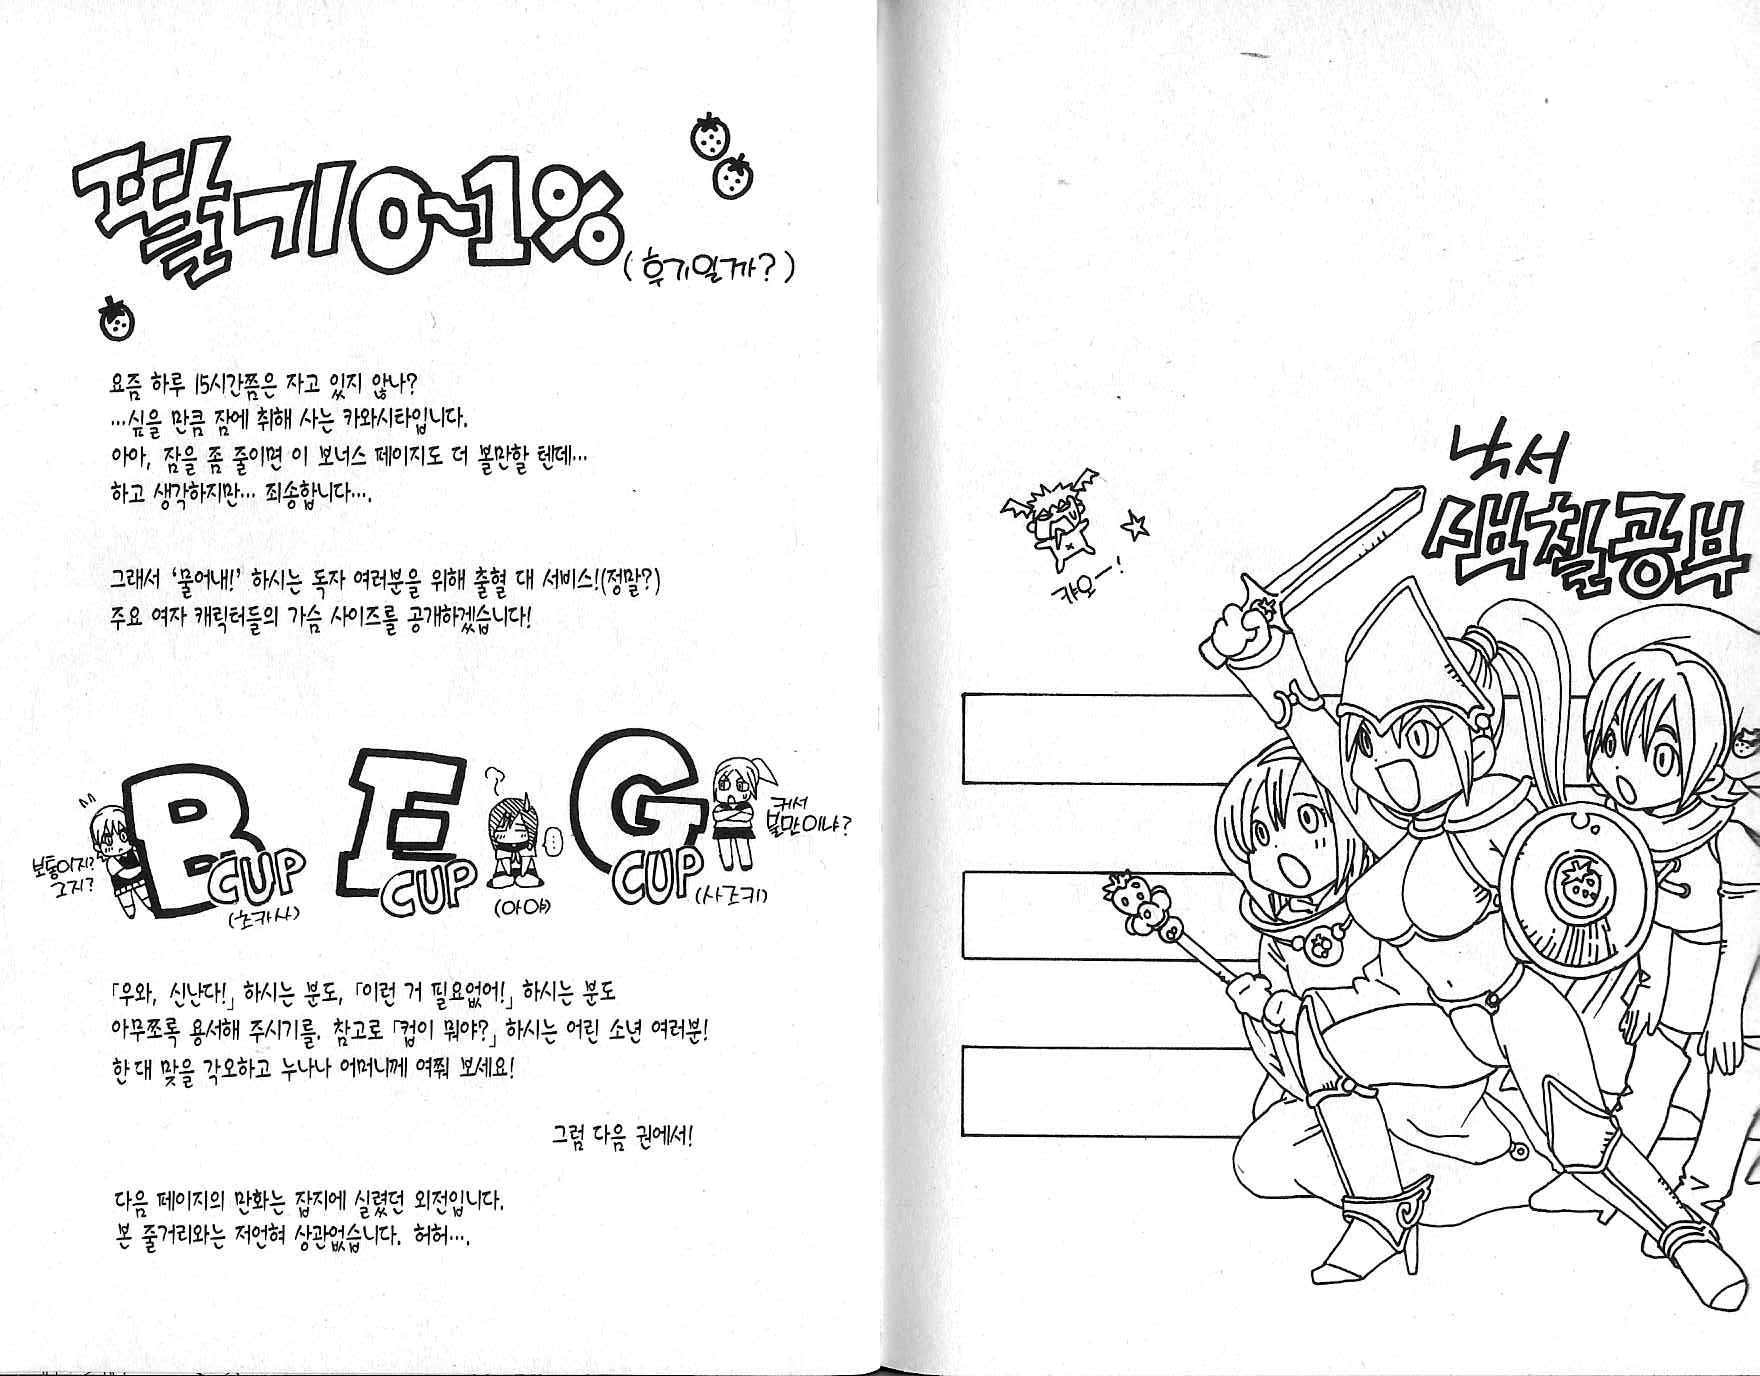 딸기 0~1%
(후기일까?)
요즘 하루 15시간쯤은 자고 있지 않나?
…싶을 만큼 잠에 취해 사는 카와시타입니다.
아아, 잠을 좀 줄이면 이 보너스 페이지도 더 볼만할 텐데…
하고 생각하지만… 죄송합니다….
그래서 '물어내!' 하시는 독자 여러분을 위해 출혈 대 서비스!(정말?)
주요 여자 캐릭터들의 가슴 사이즈를 공개하겠습니다!
보통이지?
그지?
B CUP
(츠카사)
?
E CUP
…
(아야)
G CUP
(사츠키)
커서
불만이냐?
「우와, 신난다!」 하시는 분도, 「이런 거 필요없어!」 하시는 분도
아무쪼록 용서해 주시기를. 참고로 「컵이 뭐야?」 하시는 어린 소년 여러분!
한 대 맞을 각오하고 누나나 어머니께 여쭤 보세요!
그럼 다음 권에서!
다음 페이지의 만화는 잡지에 실렸던 외전입니다.
본 줄거리와는 저언혀 상관없습니다. 허허….
낙서
색칠공부
캬오―!